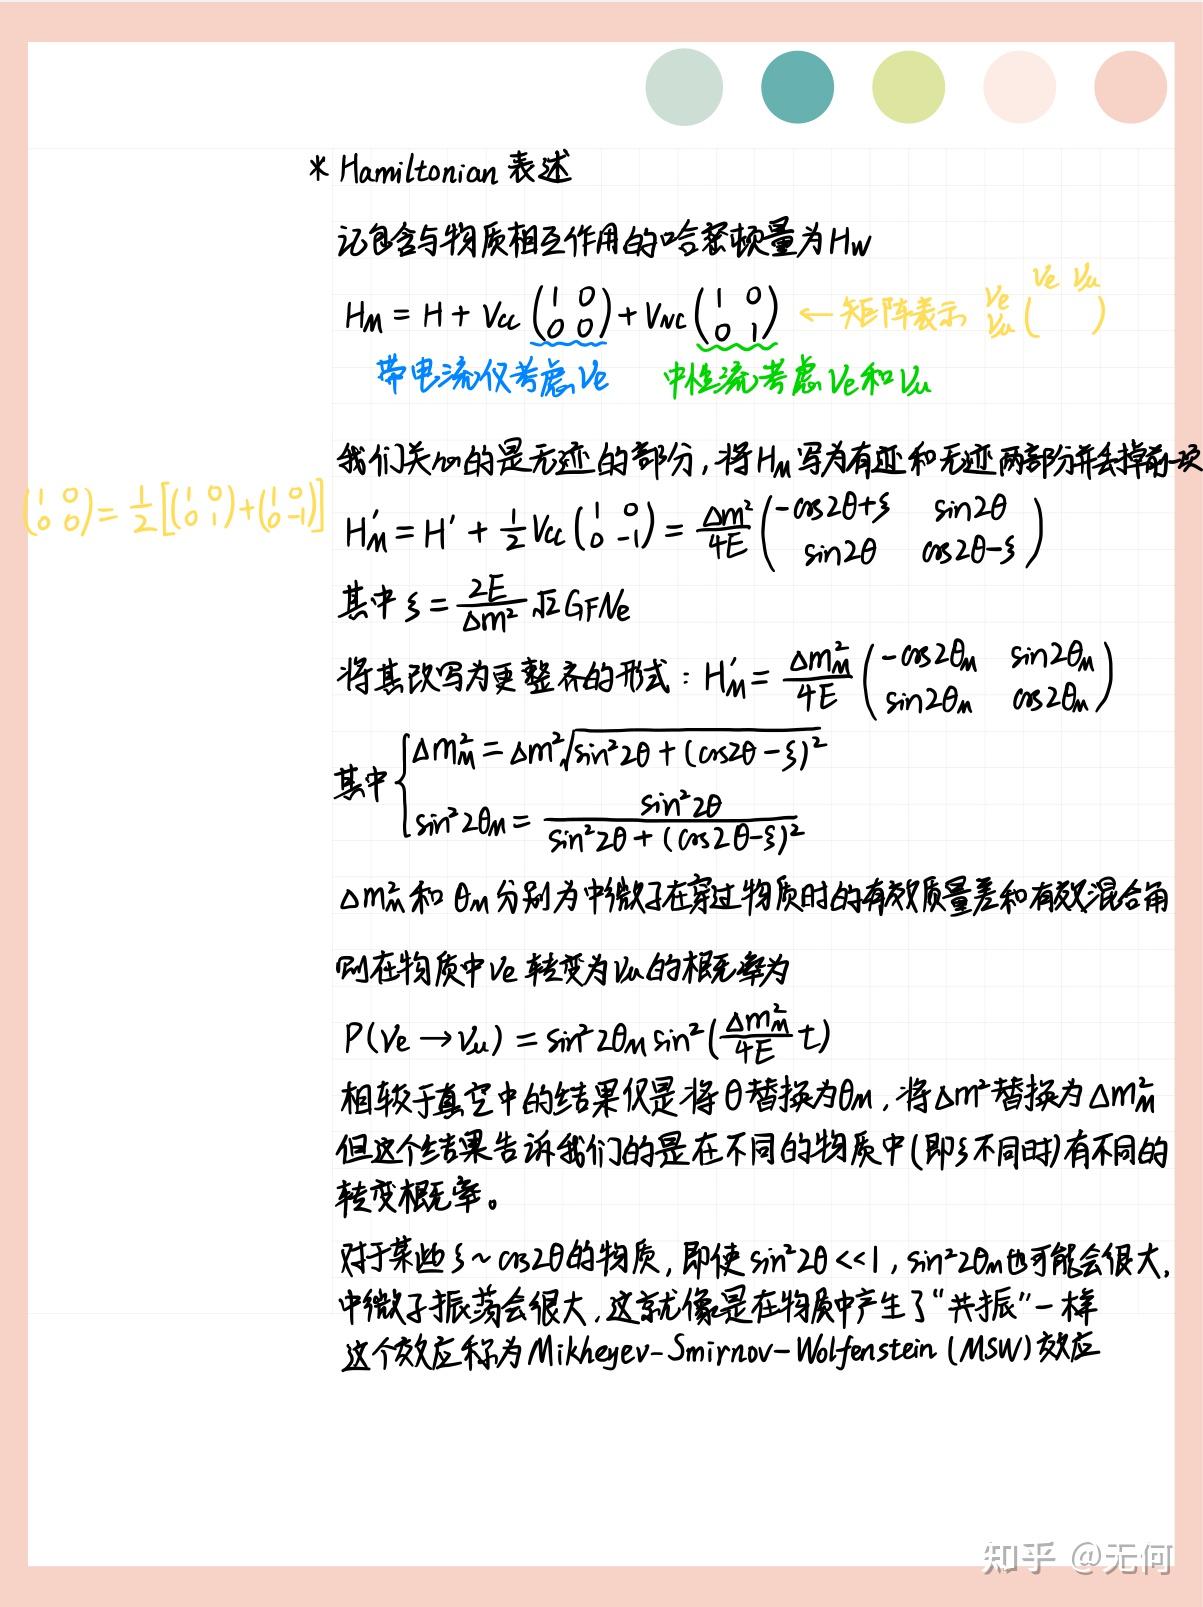 * Hamiltonian 表述
记包含与物质相互作用的哈密顿量为HW
HM = H + VCC (1 0 0 0) + VNC (1 0 0 1) ← 矩阵表示 νe νμ ( ) νe νμ
带电流仅考虑νe 中性流考虑νe和νμ
我们关心的是无迹的部分,将HM写为有迹和无迹两部分并丢掉前一项
(1 0 0 0) = 1/2[(1 0 0 1)+(1 0 0 -1)]
H'M = H' + 1/2 VCC (1 0 0 -1) = Δm²/4E (-cos2θ+ξ sin2θ sin2θ cos2θ-ξ)
其中 ξ = 2E/Δm² √2 GFNe
将其改写为更整齐的形式: H'M = Δm²M/4E (-cos2θM sin2θM sin2θM cos2θM)
其中 { Δm²M = Δm²√sin²2θ + (cos2θ-ξ)²
sin²2θM = sin²2θ / sin²2θ + (cos2θ-ξ)²
Δm²M 和 θM 分别为中微子在穿过物质时的有效质量差和有效混合角
则在物质中νe转变为νμ的概率为
P(νe → νμ) = sin²2θM sin²(Δm²M/4E t)
相较于真空中的结果仅是将θ替换为θM,将Δm²替换为Δm²M
但这个结果告诉我们的是在不同的物质中(即ξ不同时)有不同的
转变概率。
对于某些ξ~cos2θ的物质,即使sin²2θ<<1,sin²2θM也可能会很大,
中微子振荡会很大,这就像是在物质中产生了“共振”一样
这个效应称为Mikheyev-Smirnov-Wolfenstein (MSW)效应
知乎 @无何